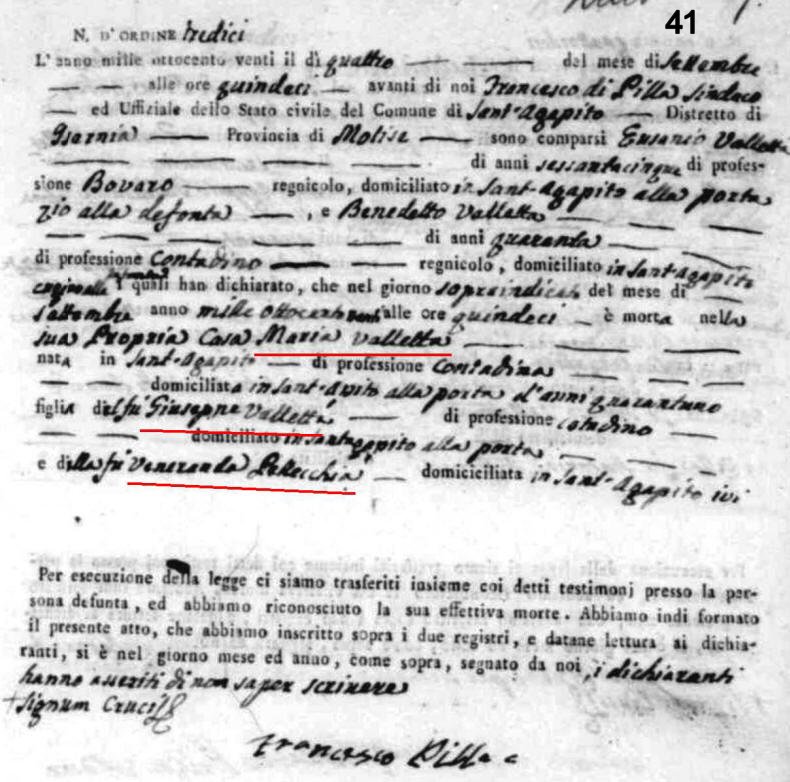 41
N. D'ORDINE tredici
L'anno mille ottocento venti il di quattro del mese di Settembre
alle ore quindeci avanti di noi Francesco di Pilla Sindaco
ed Uffiziale dello Stato civile del Comune di Sant-Agapito Distretto di
Isernia Provincia di Molise sono comparsi Eusanio Valletta
di anni sessantacinque di profes-
sione Bovaro regnicolo, domiciliato in Sant-Agapito alla porta
zio alla defonta, e Benedetto Valletta
di anni quaranta
di professione Contadino regnicolo, domiciliato in Sant-Agapito
cugino alla defonta I quali han dichiarato, che nel giorno sopraindicato del mese di
Settembre anno mille ottocento venti alle ore quindeci è morta nella
sua Propria Casa Maria Valletta
nata in Sant-Agapito di professione Contadina
domiciliata in Sant-Apito alla porta d'anni quarantuno
figlia del fù Giuseppe Valletta di professione cotadino
domiciliato in Santagapito alla porta
e della fù Veneranda Pellecchia domiciliata in Sant-Agapito ivi
Per esecuzione della legge ci siamo trasferiti insieme coi detti testimonj presso la per-
sona defunta, ed abbiamo riconosciuto la sua effettiva morte. Abbiamo indi formato
il presente atto, che abbiamo inscritto sopra i due registri, e datane lettura ai dichia-
ranti, si è nel giorno mese ed anno, come sopra, segnato da noi, i dichiaranti
hanno asseriti di non saper scrivere
+ Signum Crucis
Francesco Pilla